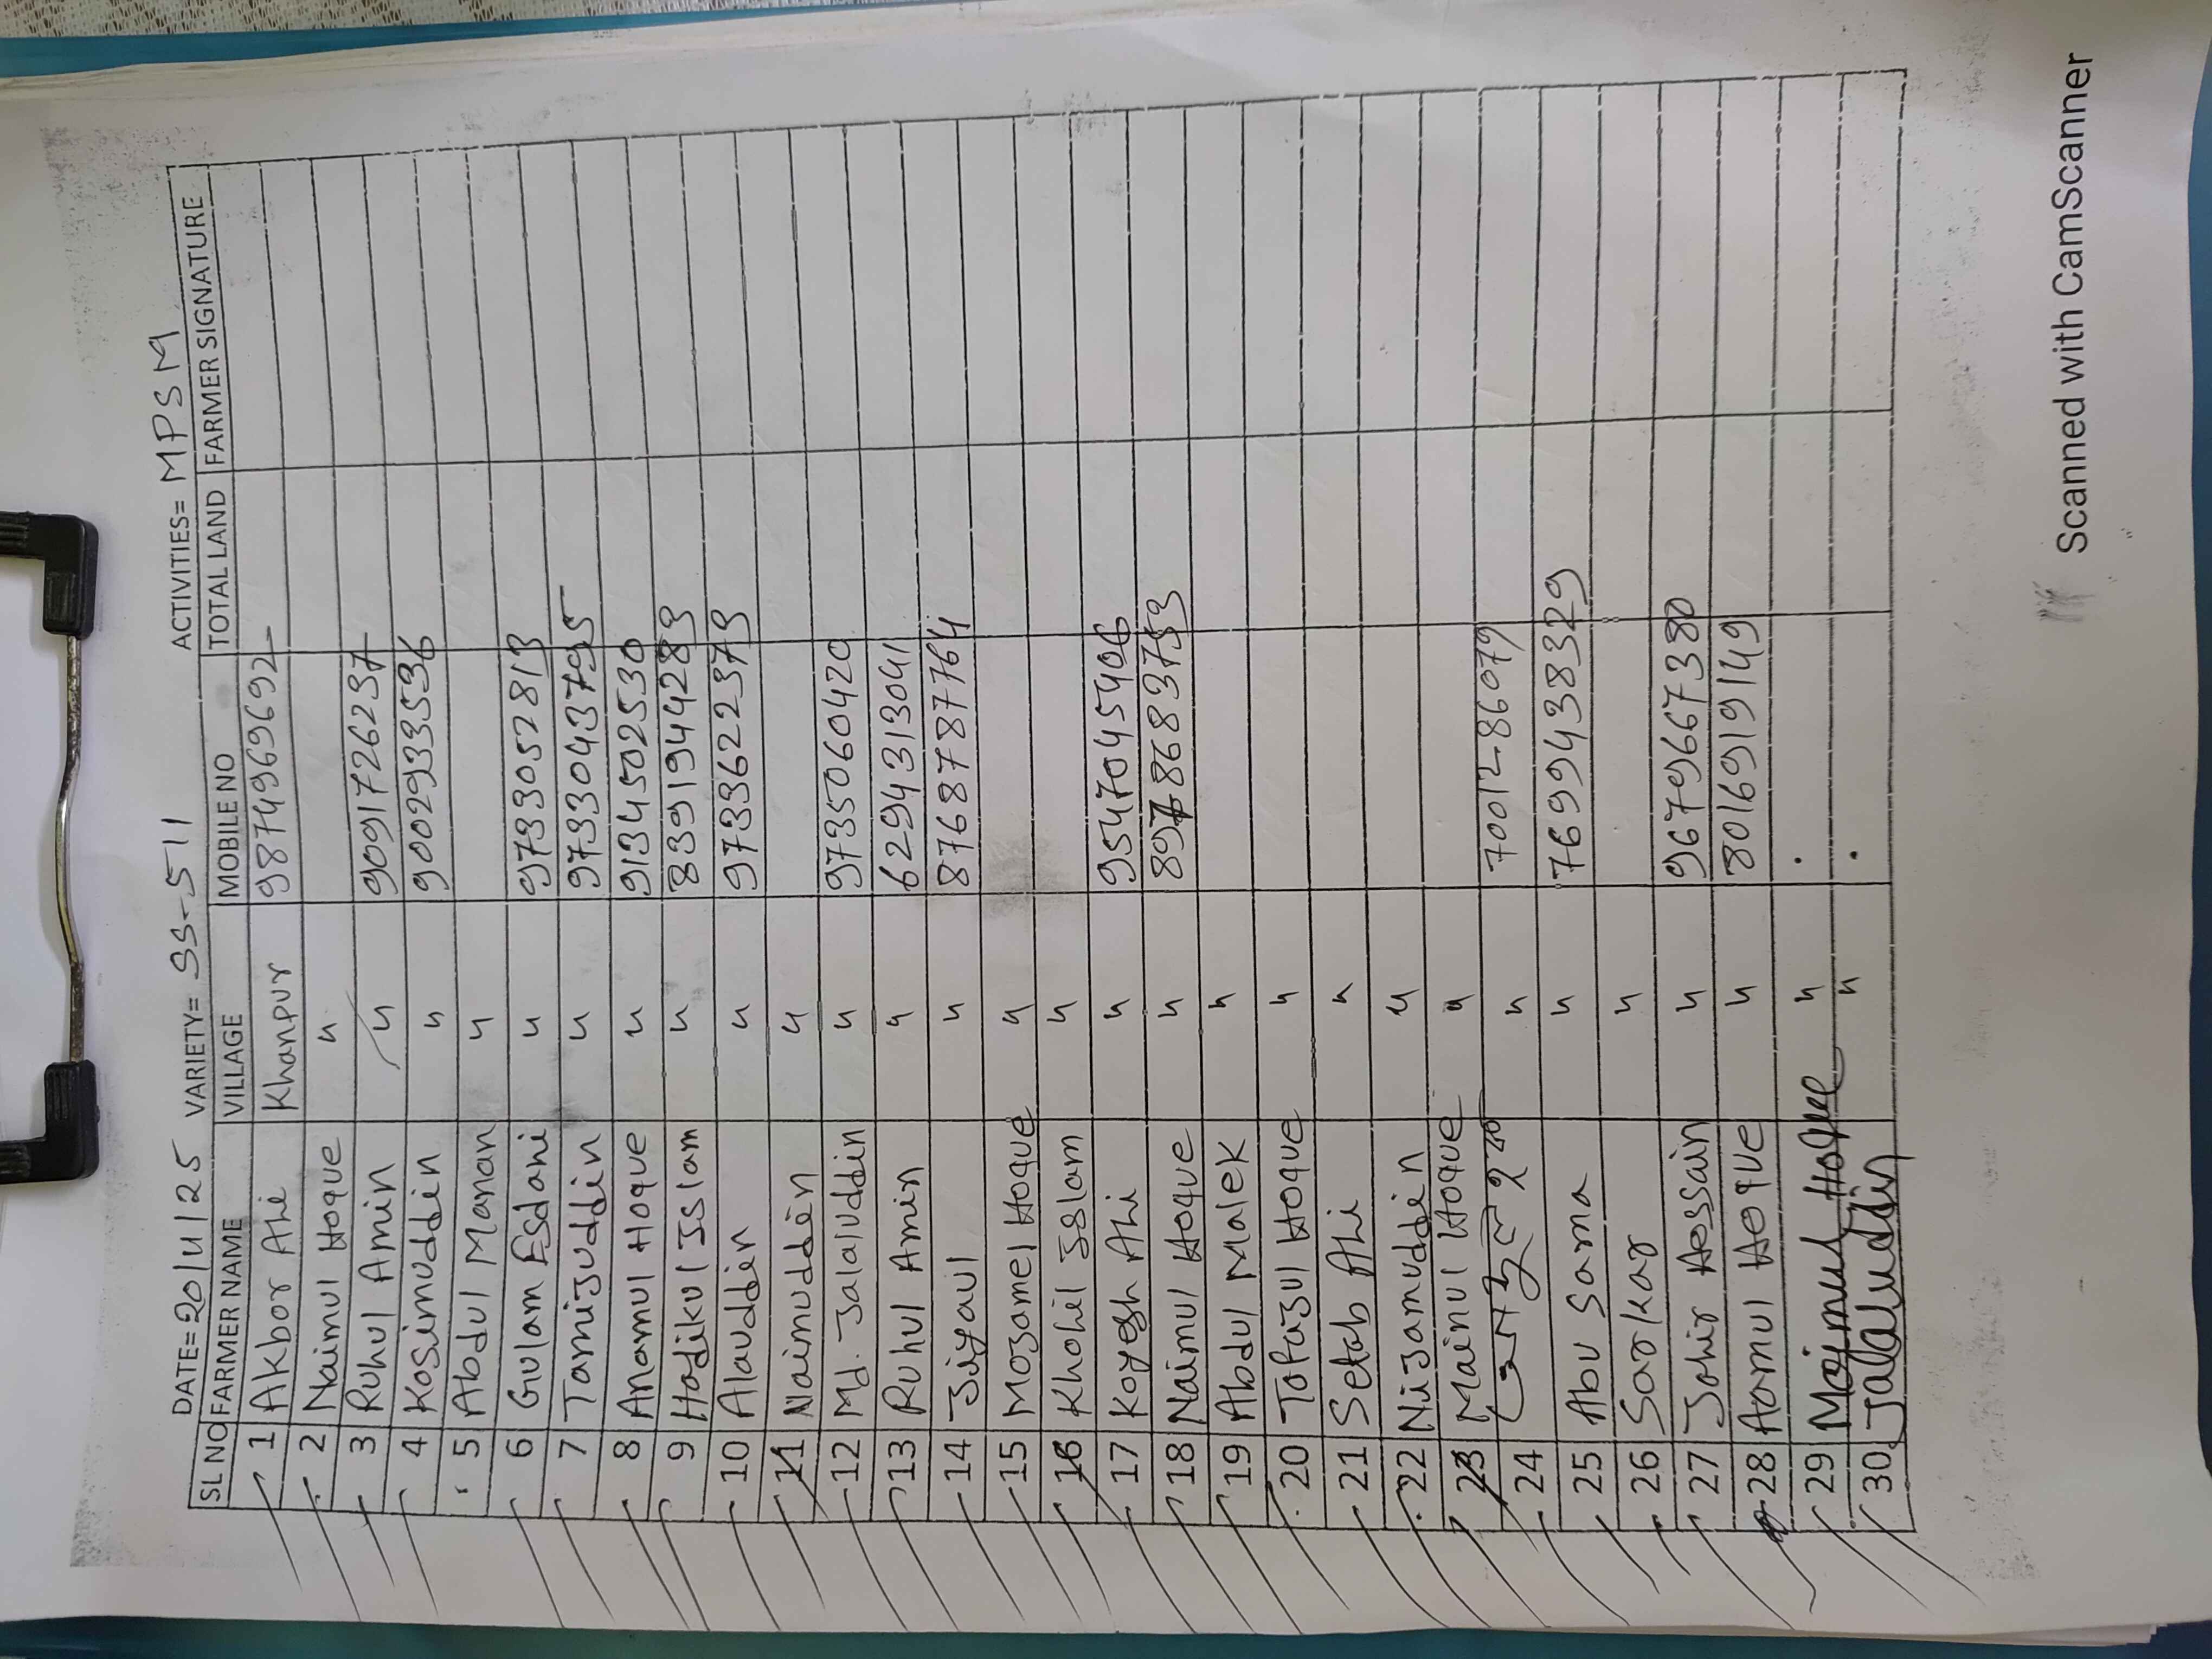 DATE=20/11/25 VARIETY= SS-511 ACTIVITIES= MPSM
SL NO FARMER NAME VILLAGE MOBILE NO TOTAL LAND FARMER SIGNATURE
1 Akbor Ali Khanpur 9874969692
2 Naimul Hoque "
3 Ruhul Amin " 9091726237
4 Kosimuddin " 9002933536
5 Abdul Manan "
6 Gulam Esdani " 9733052813
7 Tamijuddin " 9733043795
8 Anamul Hoque " 9134502530
9 Hadikul Islam " 8391944283
10 Alauddin " 9733622373
11 Naimuddin "
12 Md. Jalaluddin " 9735060420
13 Ruhul Amin " 6294313041
14 Jiyaul " 8768787764
15 Mozamel Hoque "
16 Khohil Islam "
17 Koyesh Ali " 9547045406
18 Naimul Hoque " 8978683753
19 Abdul Malek "
20 Tofazul Hoque "
21 Setab Ali "
22 Nijamuddin "
23 Mainul Hoque "
24 " 7001286079
25 Abu Sama " 7699438329
26 Sarkar "
27 Johir Hossain " 9679667380
28 Aomul Hoque " 8016919149
29 Majnul Hoque "
30 Jalaluddin "
Scanned with CamScanner